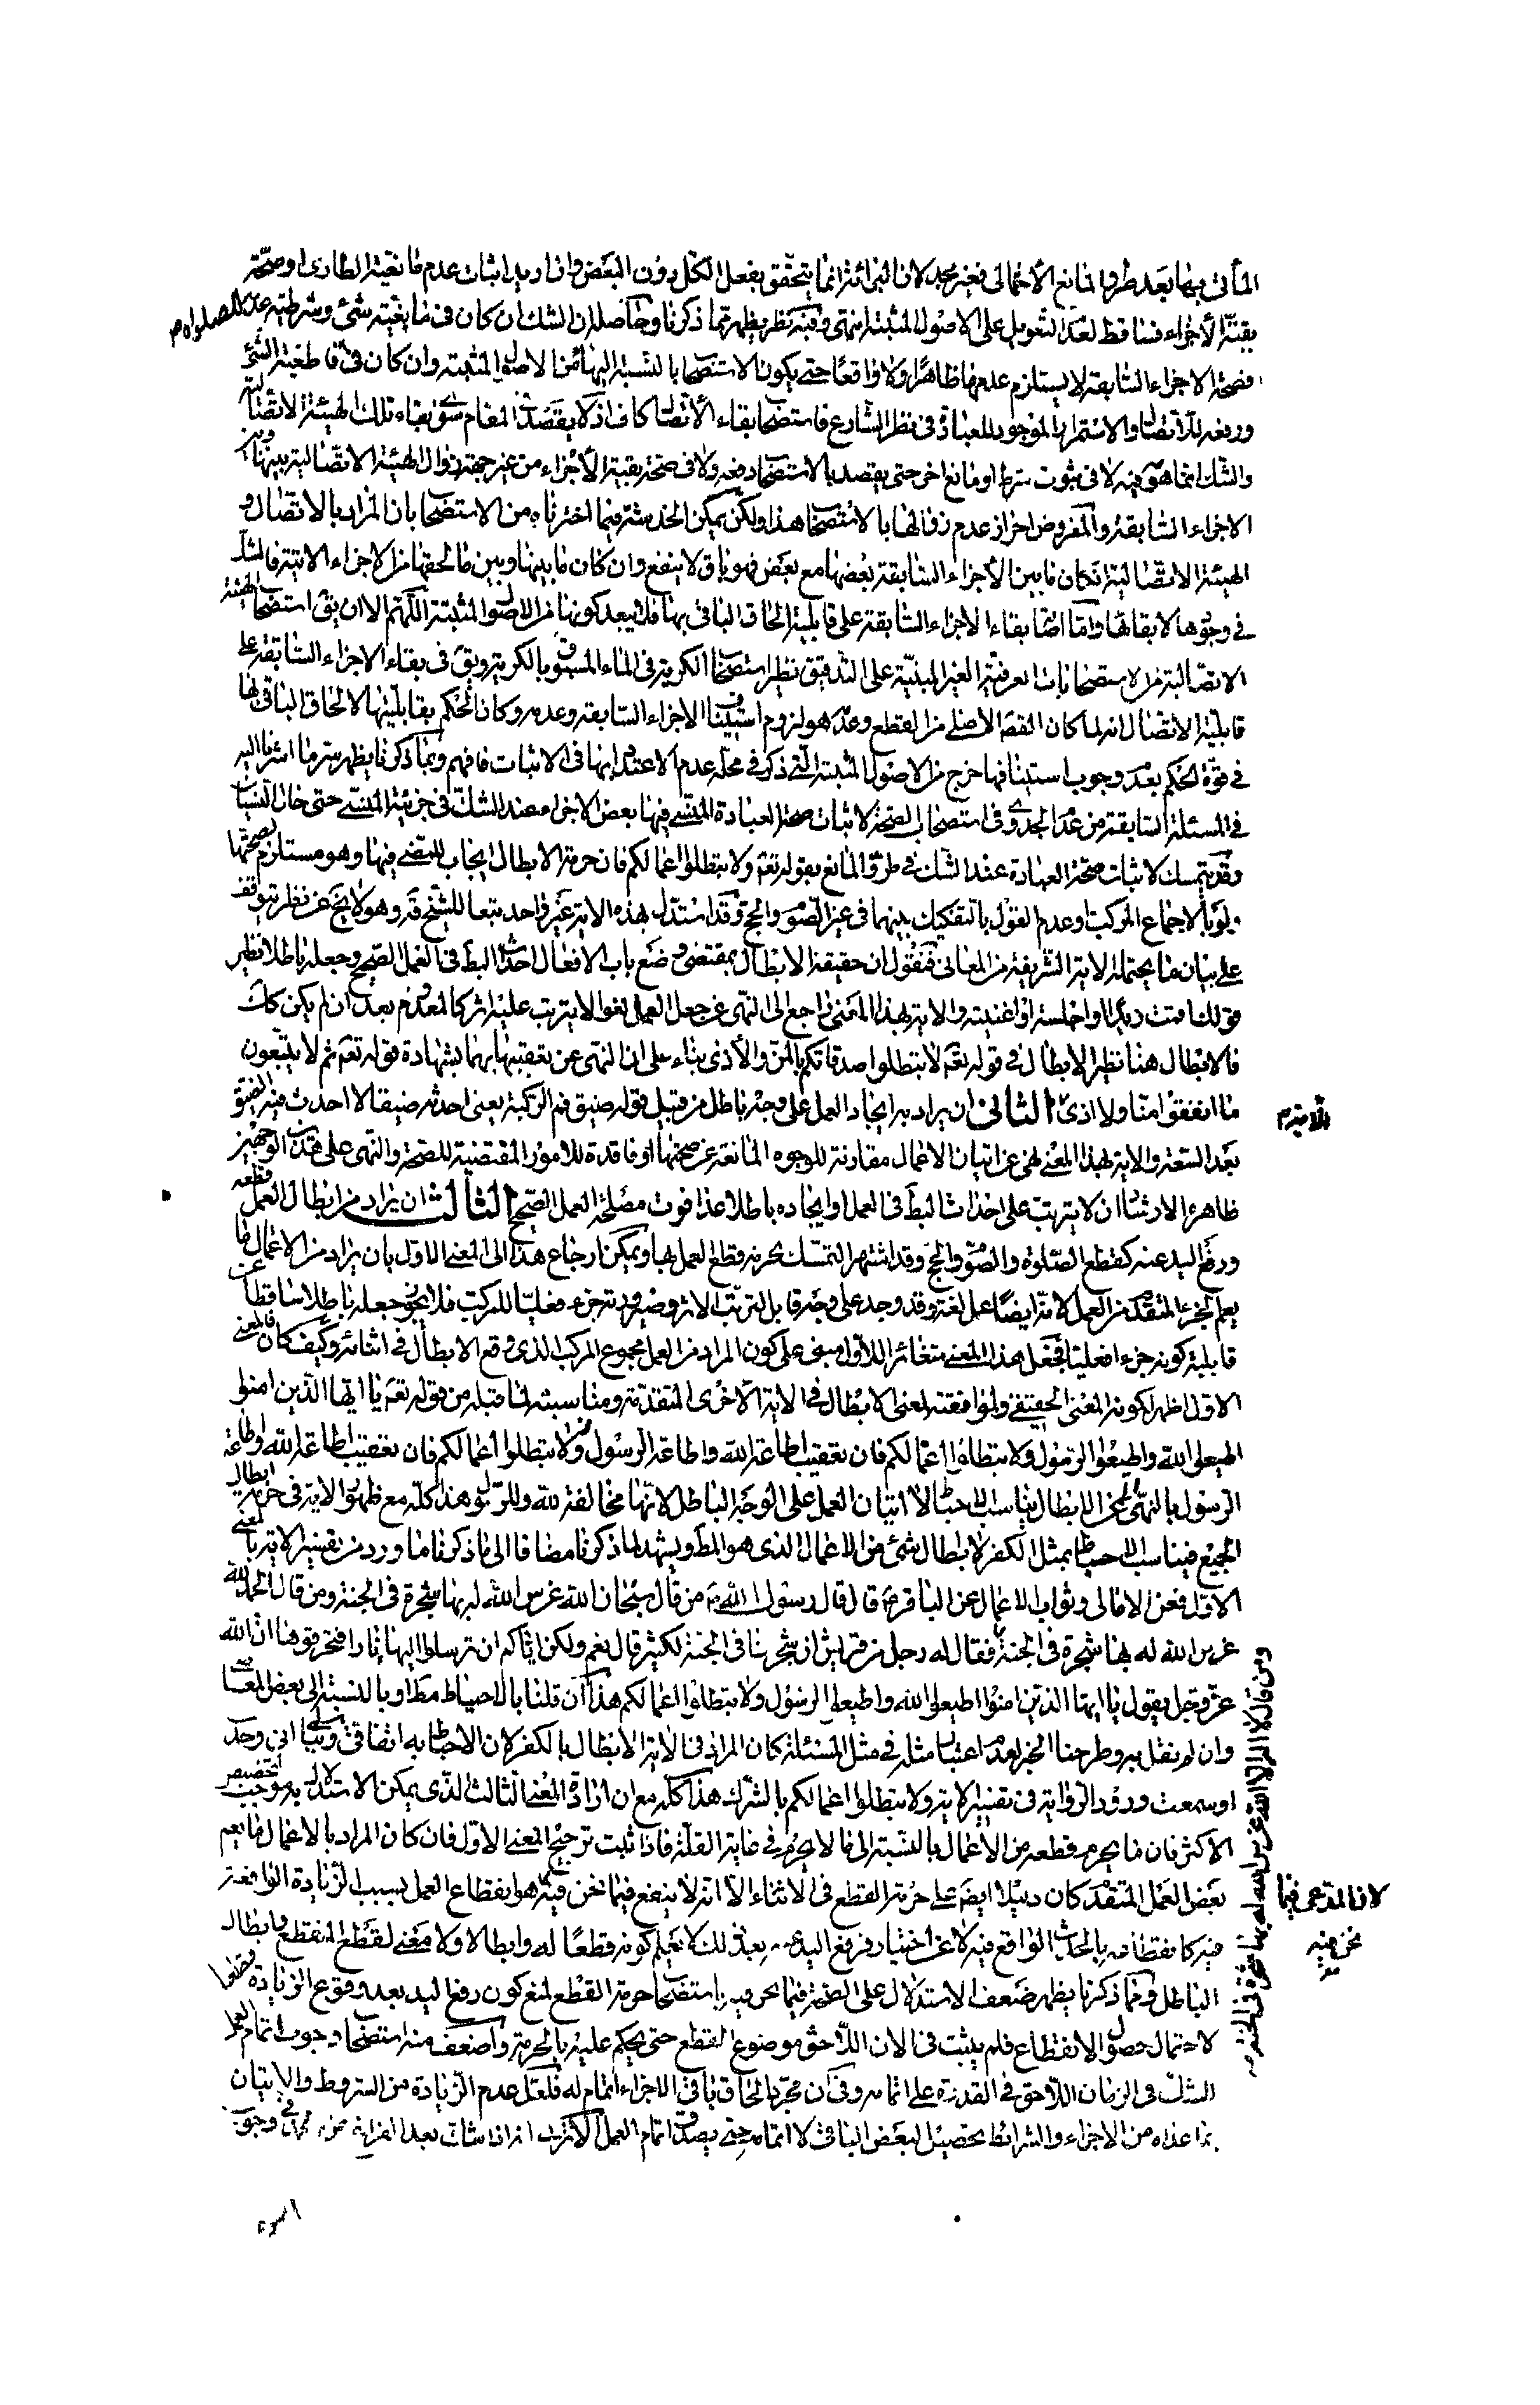 المأتى بها بعد طرو المانع الاحتمالى فغير مجد لان البرائة انما يتحقق بفعل الكل دون البعض وان اريد اثبات عدم مانعية الطارى او صحة
بقية الاجزاء فساقط لعدم التعويل على الاصول المثبتة انتهى وفيه نظر يظهر مما ذكرنا وحاصله ان الشك ان كان فى مانعية شئ وشرطية عدمه للصلوة
فصحة الاجزاء السابقة لا يستلزم عدمها ظاهرا ولا واقعا حتى يكون الاستصحاب بالنسبة اليها من الاصول المثبتة وان كان فى قاطعية الشئ
ورفعه للاتصال والاستمرار الموجود للعبادة فى نظر الشارع فاستصحاب بقاء الاتصال كاف اذ لا يقصد فى المقام سوى بقاء تلك الهيئة الاتصالية
والشك انما هو فيه لا فى ثبوت شرط او مانع اخر حتى يقصد بالاستصحاب دفعه ولا فى صحة بقية الاجزاء من غير جهة زوال الهيئة الاتصالية بينها وبين
الاجزاء السابقة والمفروض احراز عدم زوالها بالاستصحاب هذا ولكن يمكن الخدشة فيما اخترناه من الاستصحاب بان المراد بالاتصال و
الهيئة الاتصالية ان كان ما بين الاجزاء السابقة بعضها مع بعض فهو باق لا ينفع وان كان ما بينها وبين ما لحقها من الاجزاء الاتية فالشك
فى وجودها لا بقائها واما اصالة بقاء الاجزاء السابقة على قابلية الحاق الباقى بها فلا يبعد كونها من الاصول المثبتة اللهم الا ان يق استصحاب الهيئة
الاتصالية من الاستصحابات العرفية الغير المبنية على التدقيق نظير استصحاب الكرية فى الماء المسبوق بالكرية ويق فى بقاء الاجزاء السابقة على
قابلية الاتصال انه لما كان المقصد الاصلى من القطع وعدمه هو لزوم استيناف الاجزاء السابقة وعدمه وكان الحكم بقابليتها لالحاق الباقى بها
فى قوة الحكم بعدم وجوب استينافها خرج من الاصول المثبتة التى ذكر فى محله عدم الاعتداد بها فى الاثبات فافهم وبما ذكرنا يظهر سر ما اشرنا اليه
فى المسئلة السابقة من عدم الجدوى فى استصحاب الصحة لاثبات صحة العبادة المنسى فيها بعض الاجزاء عند الشك فى جزئية المنسى حتى حال النسيان
وقد يتمسك لاثبات صحة العبادة عند الشك فى طرو المانع بقوله تعم ولا تبطلوا اعمالكم فان حرمة الابطال ايجاب للمضى فيها وهو مستلزم لصحتها
ولو بالاجماع المركب او عدم القول بالتفكيك بينهما فى غير الصوم والحج وقد استدل بهذه الاية غير واحد تبعا للشيخ قده وهو لا يخ عن نظر يتوقف
على بيان ما يحتمله الاية الشريفة من المعانى فنقول ان حقيقة الابطال بمقتضى وضع باب الافعال احداث البط فى العمل الصحيح وجعله باطلا نظير
قولك اقمت زيدا او اجلسته او اغنيته والاية بهذا المعنى راجع الى النهى عن جعل العمل لغوا لا يترتب عليه اثر كالمعدوم بعد ان لم يكن كك
فالابطال هنا نظير الابطال فى قوله تعم لا تبطلوا صدقاتكم بالمن والاذى بناء على ان النهى عن تعقيبها بهما بشهادة قوله تعم ثم لا يتبعون
ما انفقوا منا ولا اذى الثانى ان يراد به ايجاد العمل على وجه باطل من قبيل قوله ضيق فم الركية يعنى احدثه ضيقا لا احدث فيه الضيق
بعد السعة والاية بهذا المعنى نهى عن اتيان الاعمال مقارنة للوجوه المانعة عن صحتها او فاقدة للامور المقتضية للصحة والنهى على هذين الوجهين
ظاهره الارشاد اذ لا يترتب على احداث البط فى العمل او ايجاده باطلا عدا فوت مصلحة العمل الصحيح الثالث ان يراد من ابطال العمل قطعه
ورفع اليد عنه كقطع الصلوة والصوم والحج وقد اشتهر التمسك لحرمة قطع العمل بها ويمكن ارجاع هذا الى المعنى الاول بان يراد من الاعمال ما
يعم الجزء المتقدم من العمل لانه ايضا عمل لغة وقد وجد على وجه قابل لترتب الاثر وصيرورته جزء فعليا للمركب فلا يجوز جعله باطلا ساقطا عن
قابلية كونه جزء فعليا فجعل هذا المعنى متغائرا للاول مبنى على كون المراد من العمل مجموع المركب الذى وقع الابطال فى اثنائه وكيف كان فالمعنى
الاول اظهر لكونه المعنى الحقيقى ولموافقته لمعنى الابطال فى الاية الاخرى المتقدمة ومناسبته لما قبله من قوله تعم يا ايها الذين امنوا
اطيعوا الله واطيعوا الرسول ولا تبطلوا اعمالكم فان تعقيب اطاعة الله واطاعة الرسول ولا تبطلوا اعمالكم فان تعقيب اطاعة الله واطاعة
الرسول بالنهى عن الابطال يناسب الاحباط لا اتيان العمل على الوجه الباطل لانها مخالفة لله وللرسول هذا كله مع ظهور الاية فى حرمة ابطال
الجميع فيناسب الاحباط بمثل الكفر لا ابطال شئ من الاعمال الذى هو المط ويشهد لما ذكرنا مضافا الى ما ذكرنا ما ورد من تفسير الاية بالمعنى
الاول فعن الامالى وثواب الاعمال عن الباقر ع قال قال رسول الله ص من قال سبحان الله غرس الله له بها شجرة فى الجنة ومن قال الحمد لله
غرس الله له بها شجرة فى الجنة فقال له رجل من قريش ان شجرنا فى الجنة لكثير قال نعم ولكن اياكم ان ترسلوا اليها نارا فتحرقوها ان الله
عز وجل يقول يا ايها الذين امنوا اطيعوا الله واطيعوا الرسول ولا تبطلوا اعمالكم هذا ان قلنا بالاحباط مط او بالنسبة الى بعض المعاصى
وان لم نقل به وطرحنا الخبر لعدم اعتبار مثله فى مثل المسئلة كان المراد فى الاية الابطال بالكفر لان الاحباط به اتفاقى وببالى انى وجدت
او سمعت ورود الرواية فى تفسير الاية ولا تبطلوا اعمالكم بالشرك هذا كله مع ان ارادة المعنى الثالث الذى يمكن الاستدلال به موجب لتخصيص
الاكثر فان ما يحرم قطعه من الاعمال بالنسبة الى ما لا يحرم فى غاية القلة فاذا ثبت ترجيح المعنى الاول فان كان المراد بالاعمال ما يعم
بعض العمل المتقدم كان دليلا ايضا على حرمة القطع فى الاثناء الا انه لا ينفع فيما نحن فيه هو انقطاع العمل بسبب الزيادة الواقعة
لان المدعى فيما نحن فيه
فيه كانقطاعه بالحدث الواقع فيه لا عن اختيار فرفع اليد عنه بعد ذلك لا يعلم كونه قطعا له وابطالا ولا معنى لقطع المنقطع وابطال
الباطل ومما ذكرنا يظهر ضعف الاستدلال على الصحة فيما نحن فيه باستصحاب حرمة القطع لمنع كون رفع اليد بعد وقوع الزيادة قطعا
لاحتمال حصول الانقطاع فلم يثبت فى الان اللاحق موضوع القطع حتى يحكم عليه بالحرمة واضعف منه استصحاب وجوب اتمام العمل
للشك فى الزمان اللاحق فى القدرة على اتمامه وفى ان مجرد الحاق باقى الاجزاء اتمام له فلعل عدم الزيادة من الشروط والاتيان
بما عداه من الاجزاء والشرائط تحصيل لبعض الباقى لا اتمامه حتى يصدق اتمام العمل الا ترى انه اذا شك بعد الفراغ عن الحمد فى وجوب
السورة
ومن قال لا اله الا الله غرس الله له بها شجرة فى الجنة